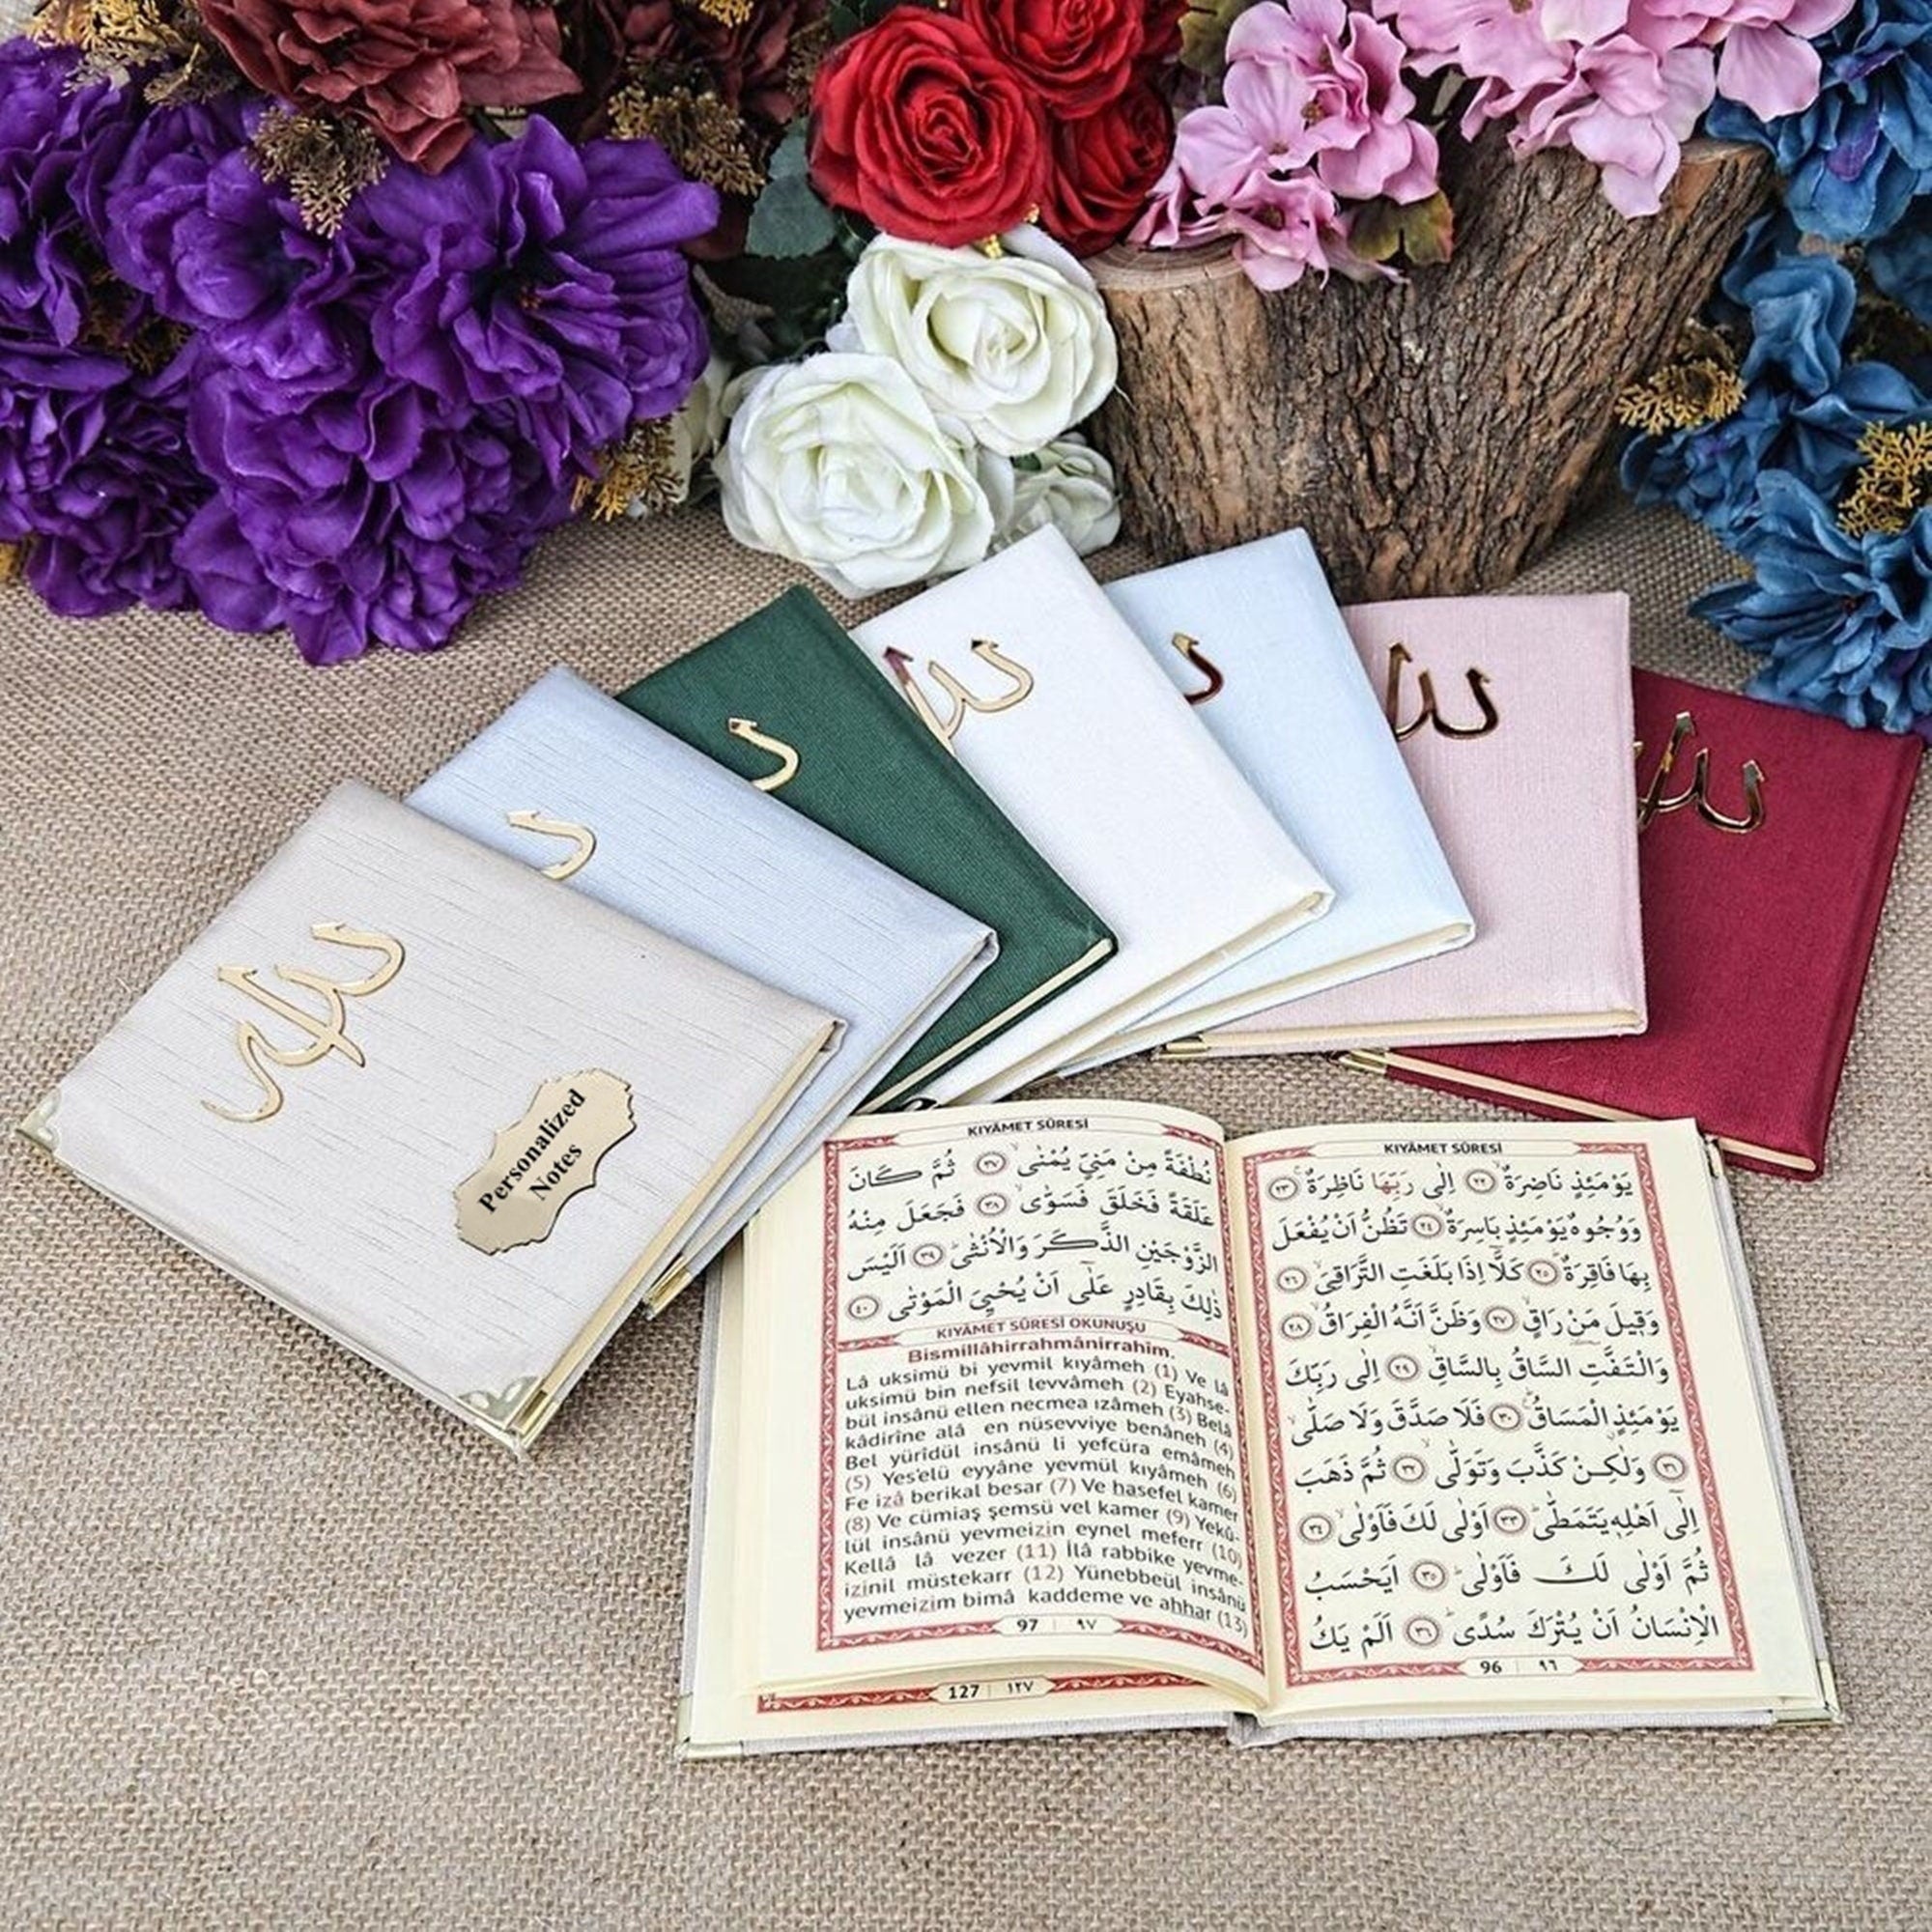 Personalized
Notes
KIYÂMET SÛRESİ
يَوْمَئِذٍ نَاضِرَةٌۙ ﴿٢٢﴾ اِلٰى رَبِّهَا نَاظِرَةٌۚ ﴿٢٣﴾
وَوُجُوهٌ يَوْمَئِذٍ بَاسِرَةٌۙ ﴿٢٤﴾ تَظُنُّ اَنْ يُفْعَلَ
بِهَا فَاقِرَةٌۜ ﴿٢٥﴾ كَلَّٓا اِذَا بَلَغَتِ التَّرَاقِيَۙ ﴿٢٦﴾
وَقِيلَ مَنْ رَاقٍۙ ﴿٢٧﴾ وَظَنَّ اَنَّهُ الْفِرَاقُۙ ﴿٢٨﴾
وَالْتَفَّتِ السَّاقُ بِالسَّاقِۙ ﴿٢٩﴾ اِلٰى رَبِّكَ
يَوْمَئِذٍۨ الْمَسَاقُۜ ﴿٣٠﴾ فَلَا صَدَّقَ وَلَا صَلّٰىۙ
﴿٣١﴾ وَلٰكِنْ كَذَّبَ وَتَوَلّٰىۙ ﴿٣٢﴾ ثُمَّ ذَهَبَ
اِلٰٓى اَهْلِه۪ يَتَمَطّٰىۜ ﴿٣٣﴾ اَوْلٰى لَكَ فَاَوْلٰىۙ ﴿٣٤﴾
ثُمَّ اَوْلٰى لَكَ فَاَوْلٰىۜ ﴿٣٥﴾ اَيَحْسَبُ
الْاِنْسَانُ اَنْ يُتْرَكَ سُدًىۜ ﴿٣٦﴾ اَلَمْ يَكُ
96 | ٩٦
KIYÂMET SÛRESİ
نُطْفَةً مِنْ مَنِيٍّ يُمْنٰىۙ ﴿٣٧﴾ ثُمَّ كَانَ
عَلَقَةً فَخَلَقَ فَسَوّٰىۙ ﴿٣٨﴾ فَجَعَلَ مِنْهُ
الزَّوْجَيْنِ الذَّكَرَ وَالْاُنْثٰىۜ ﴿٣٩﴾ اَلَيْسَ
ذٰلِكَ بِقَادِرٍ عَلٰٓى اَنْ يُحْيِيَ الْمَوْتٰى ﴿٤٠﴾
KIYÂMET SÛRESİ OKUNUŞU
Bismillâhirrahmânirrahim.
Lâ uksimü bi yevmil kıyâmeh (1) Ve lâ
uksimü bin nefsil levvâmeh (2) Eyahse-
bül insânü ellen necmea ızâmeh (3) Belâ
kâdirîne alâ en nüsevviye benâneh (4)
Bel yürîdül insânü li yefcüra emâmeh
(5) Yes'elü eyyâne yevmül kıyâmeh (6)
Fe izâ berikal besar (7) Ve hasefel kamer
(8) Ve cümiaş şemsü vel kamer (9) Yekû-
lül insânü yevmeizin eynel meferr (10)
Kellâ lâ vezer (11) İlâ rabbike yevme-
izinil müstekarr (12) Yünebbeül insânü
yevmeizim bimâ kaddeme ve ahhar (13)
97 | ٩٧
127 | ١٢٧